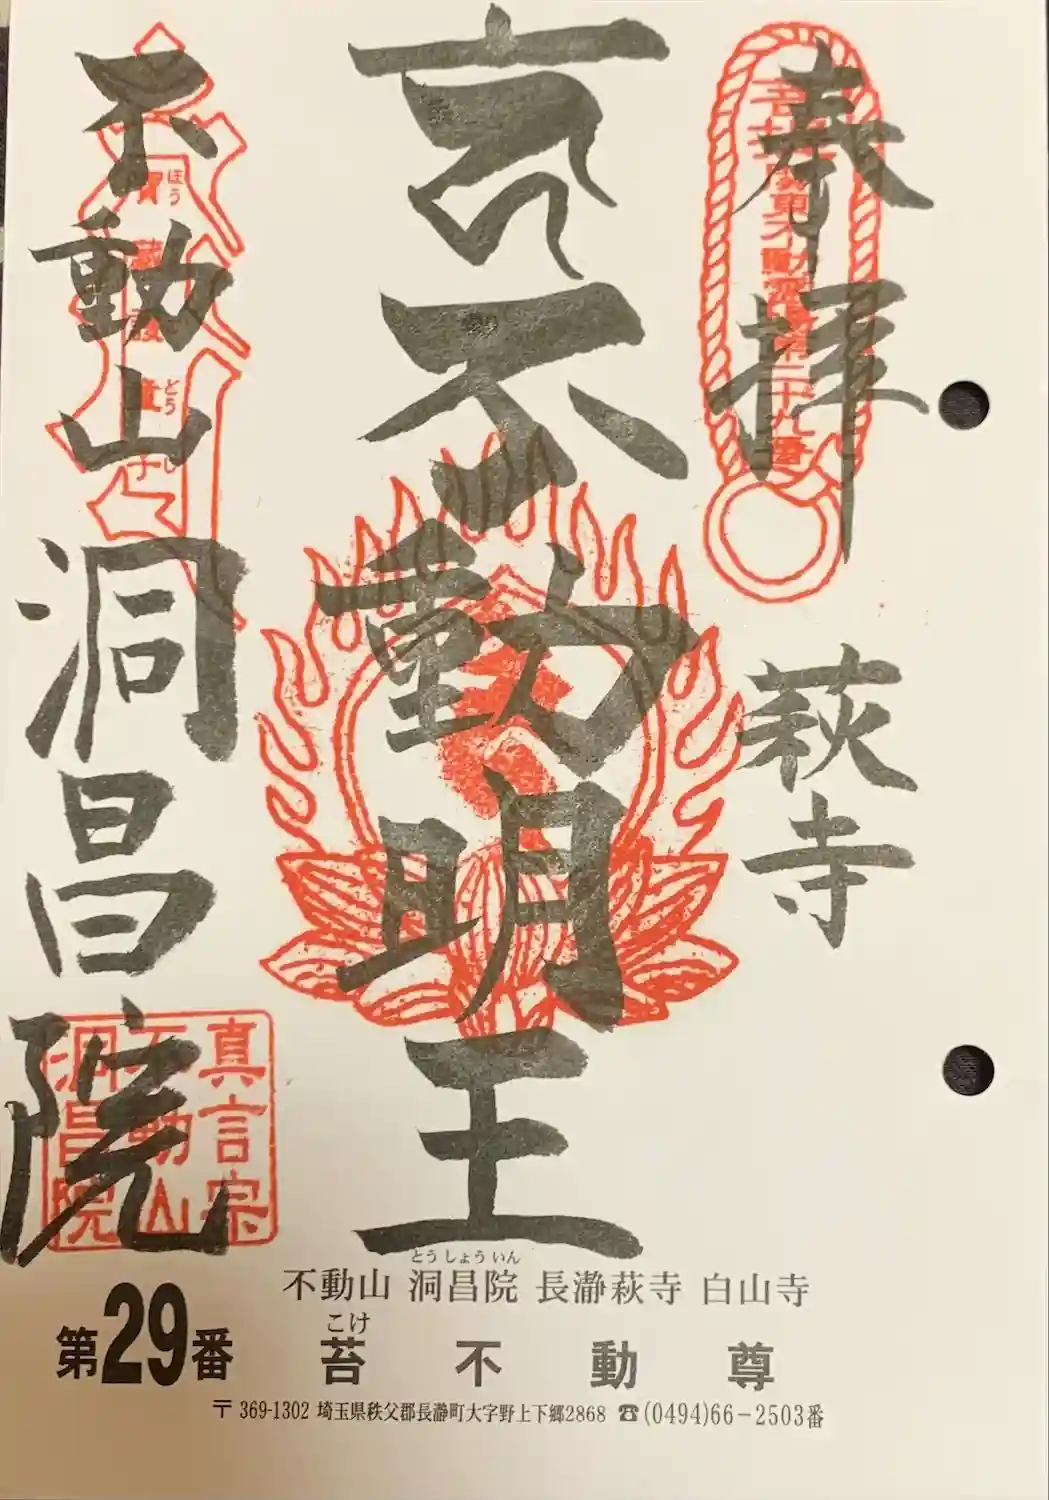 奉拝
萩寺
不動明王
不動山
洞昌院
関東不動霊場第二十九番
ほう
どうじ
真言宗
不動山
洞昌院
とうしょういん
不動山 洞昌院 長瀞萩寺 白山寺
第29番
こけ
苔不動尊
〒369-1302 埼玉県秩父郡長瀞町大字野上下郷2868 ☎(0494)66-2503番